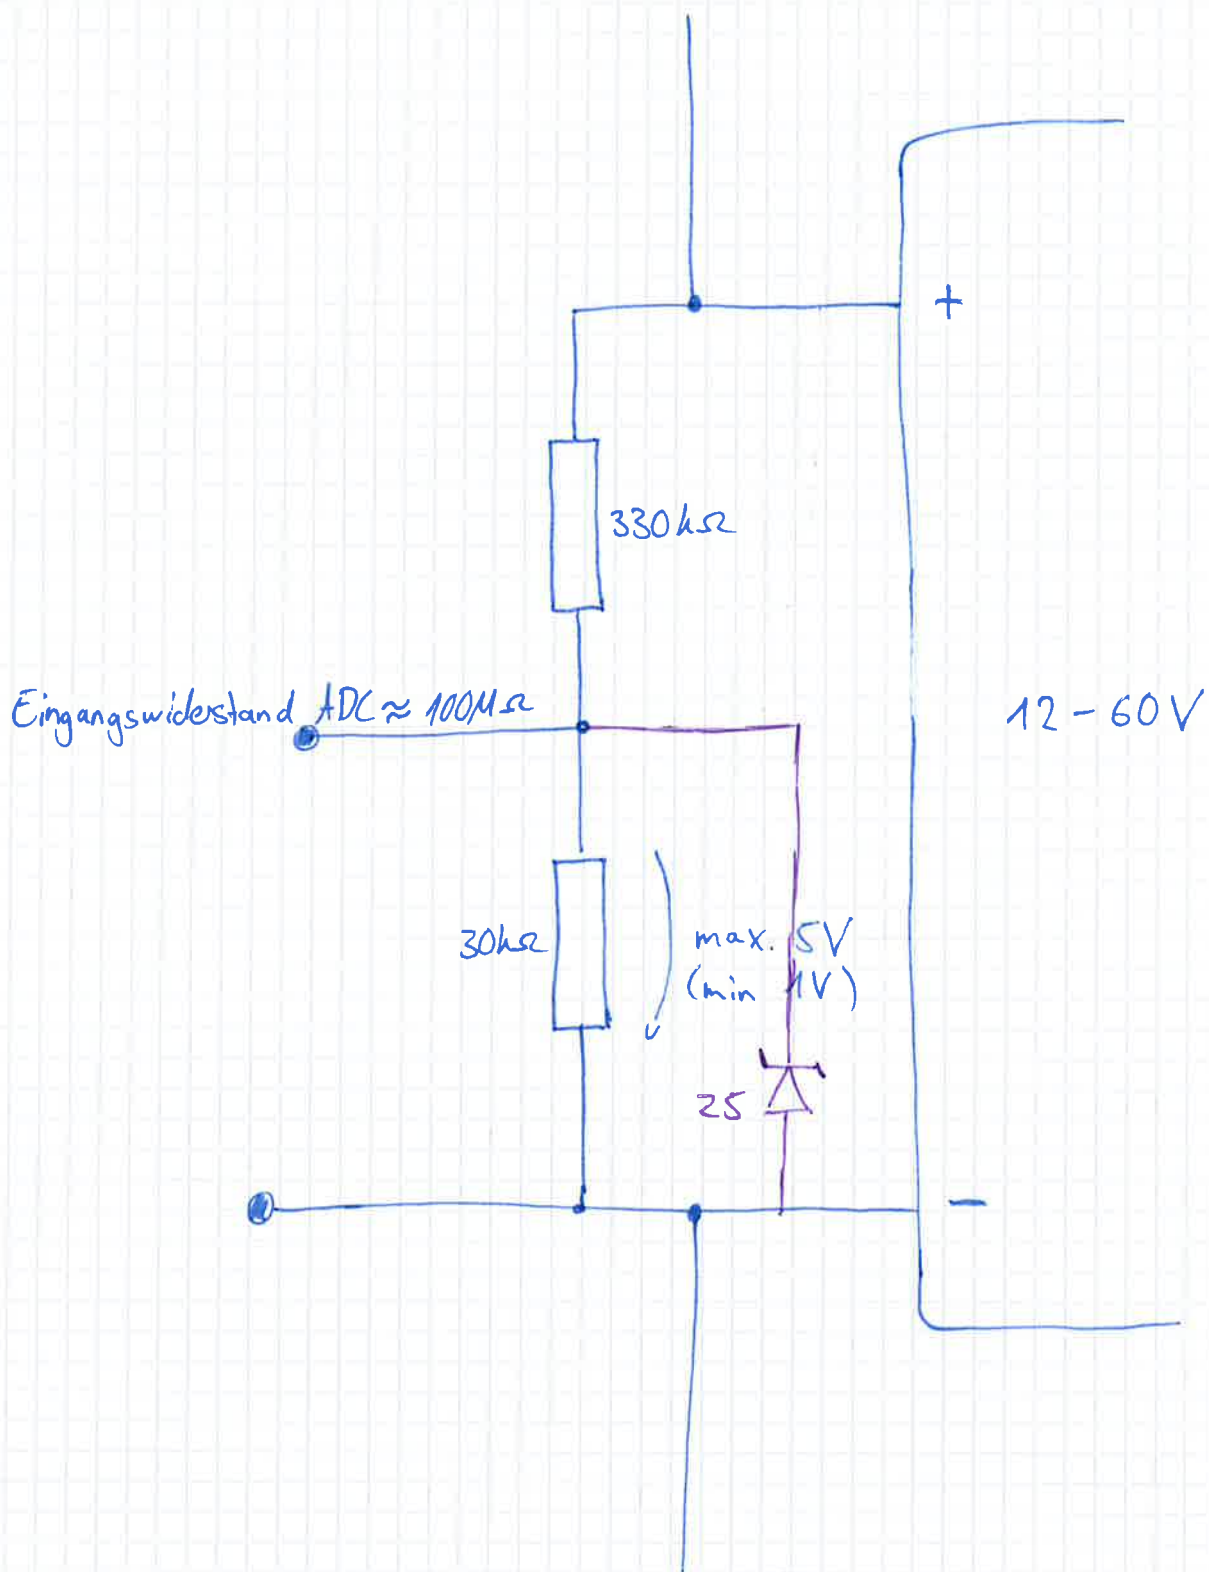 +
330kΩ
Eingangswiderstand ADC ≈ 100MΩ
12 - 60V
30kΩ
max. 5V
(min 1V)
Z5
-